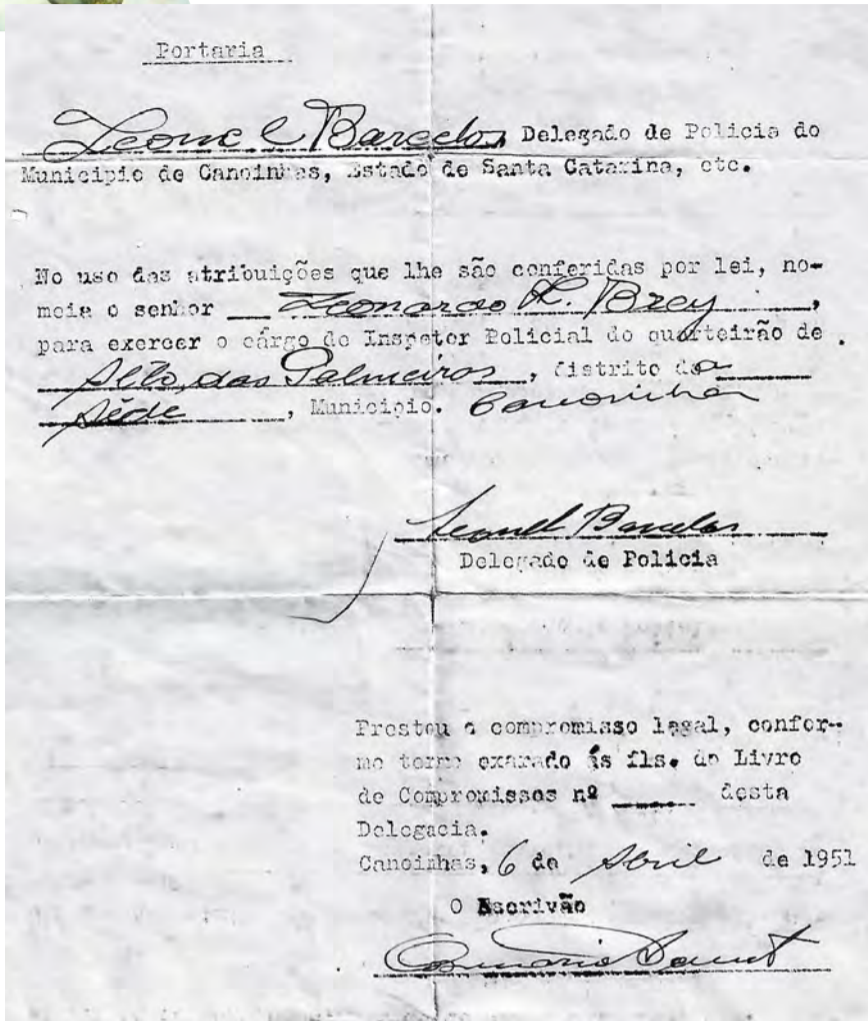 Portaria
Leonel Barcelos Delegado de Policia do
Municipio de Canoinhas, Estado de Santa Catarina, etc.
No uso das atribuições que lhe são conferidas por lei, no-
meia o senhor Leonardo L. Brey,
para exercer o cárgo de Inspetor Policial do quarteirão de
Alto das Palmeiras, distrito da
Séde, Municipio. Canoinhas
Leonel Barcelos
Delegado de Policia
Prestou o compromisso legal, confor-
me termo exarado ás fls. do Livro
de Compromissos nº ____ desta
Delegacia.
Canoinhas, 6 de Abril de 1951
O Escrivão